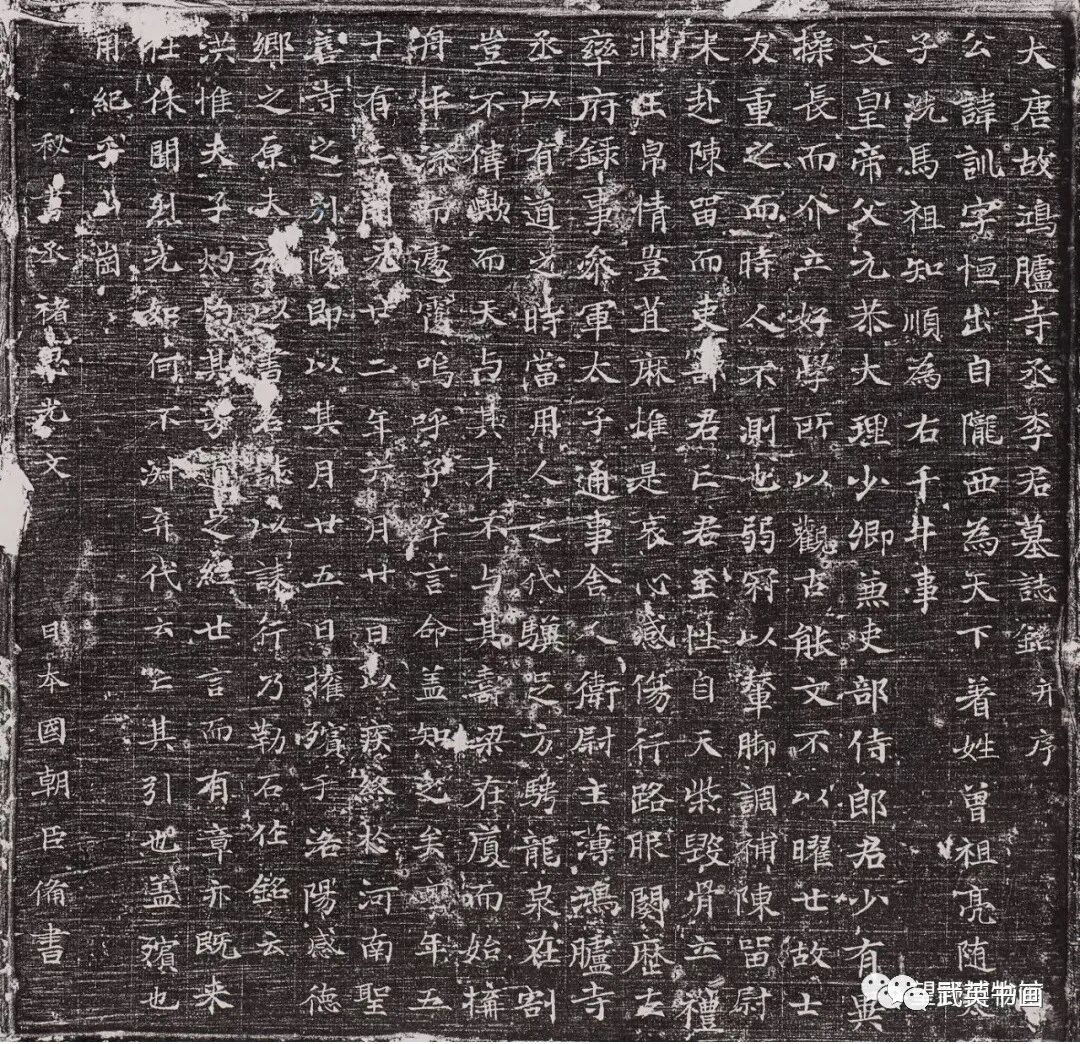 大唐故鴻臚寺丞李君墓誌銘并序
公諱訓字恒出自隴西為天下著姓曾祖亮随太
子洗馬祖知順為右千牛事
文皇帝父元恭大理少卿兼吏部侍郎君少有異
操長而介立好學所以觀古能文不以曜世故士
友重之而時人不測也弱冠以輦脚調補陳留尉
未赴陳留而吏部君亡君至性自天柴毀骨立禮
非玉帛情豈苴麻惟是哀心感傷行路服闋歷左
率府録事叅軍太子通事舍人衛尉主薄鴻臚寺
丞以有道之時當用人之代驥足方騁龍泉在割
豈不偉歟而天与其才不与其壽梁在廈而始構
舟中流而遽覆嗚呼子罕言命盖知之矣享年五
十有二開元廿二年六月廿日以疾終於河南聖
善寺之別院即以其月廿五日權殯于洛陽感德
鄉之原夫旌以書名誌以誄行乃勒石作銘云
洪惟夫子灼灼其芳道之經世言而有章亦既来
仕休聞烈光如何不淑弃代云亡其引也盖殯也
用紀乎山崗
秘書丞褚思光文 日本國朝臣備書
望武英物画